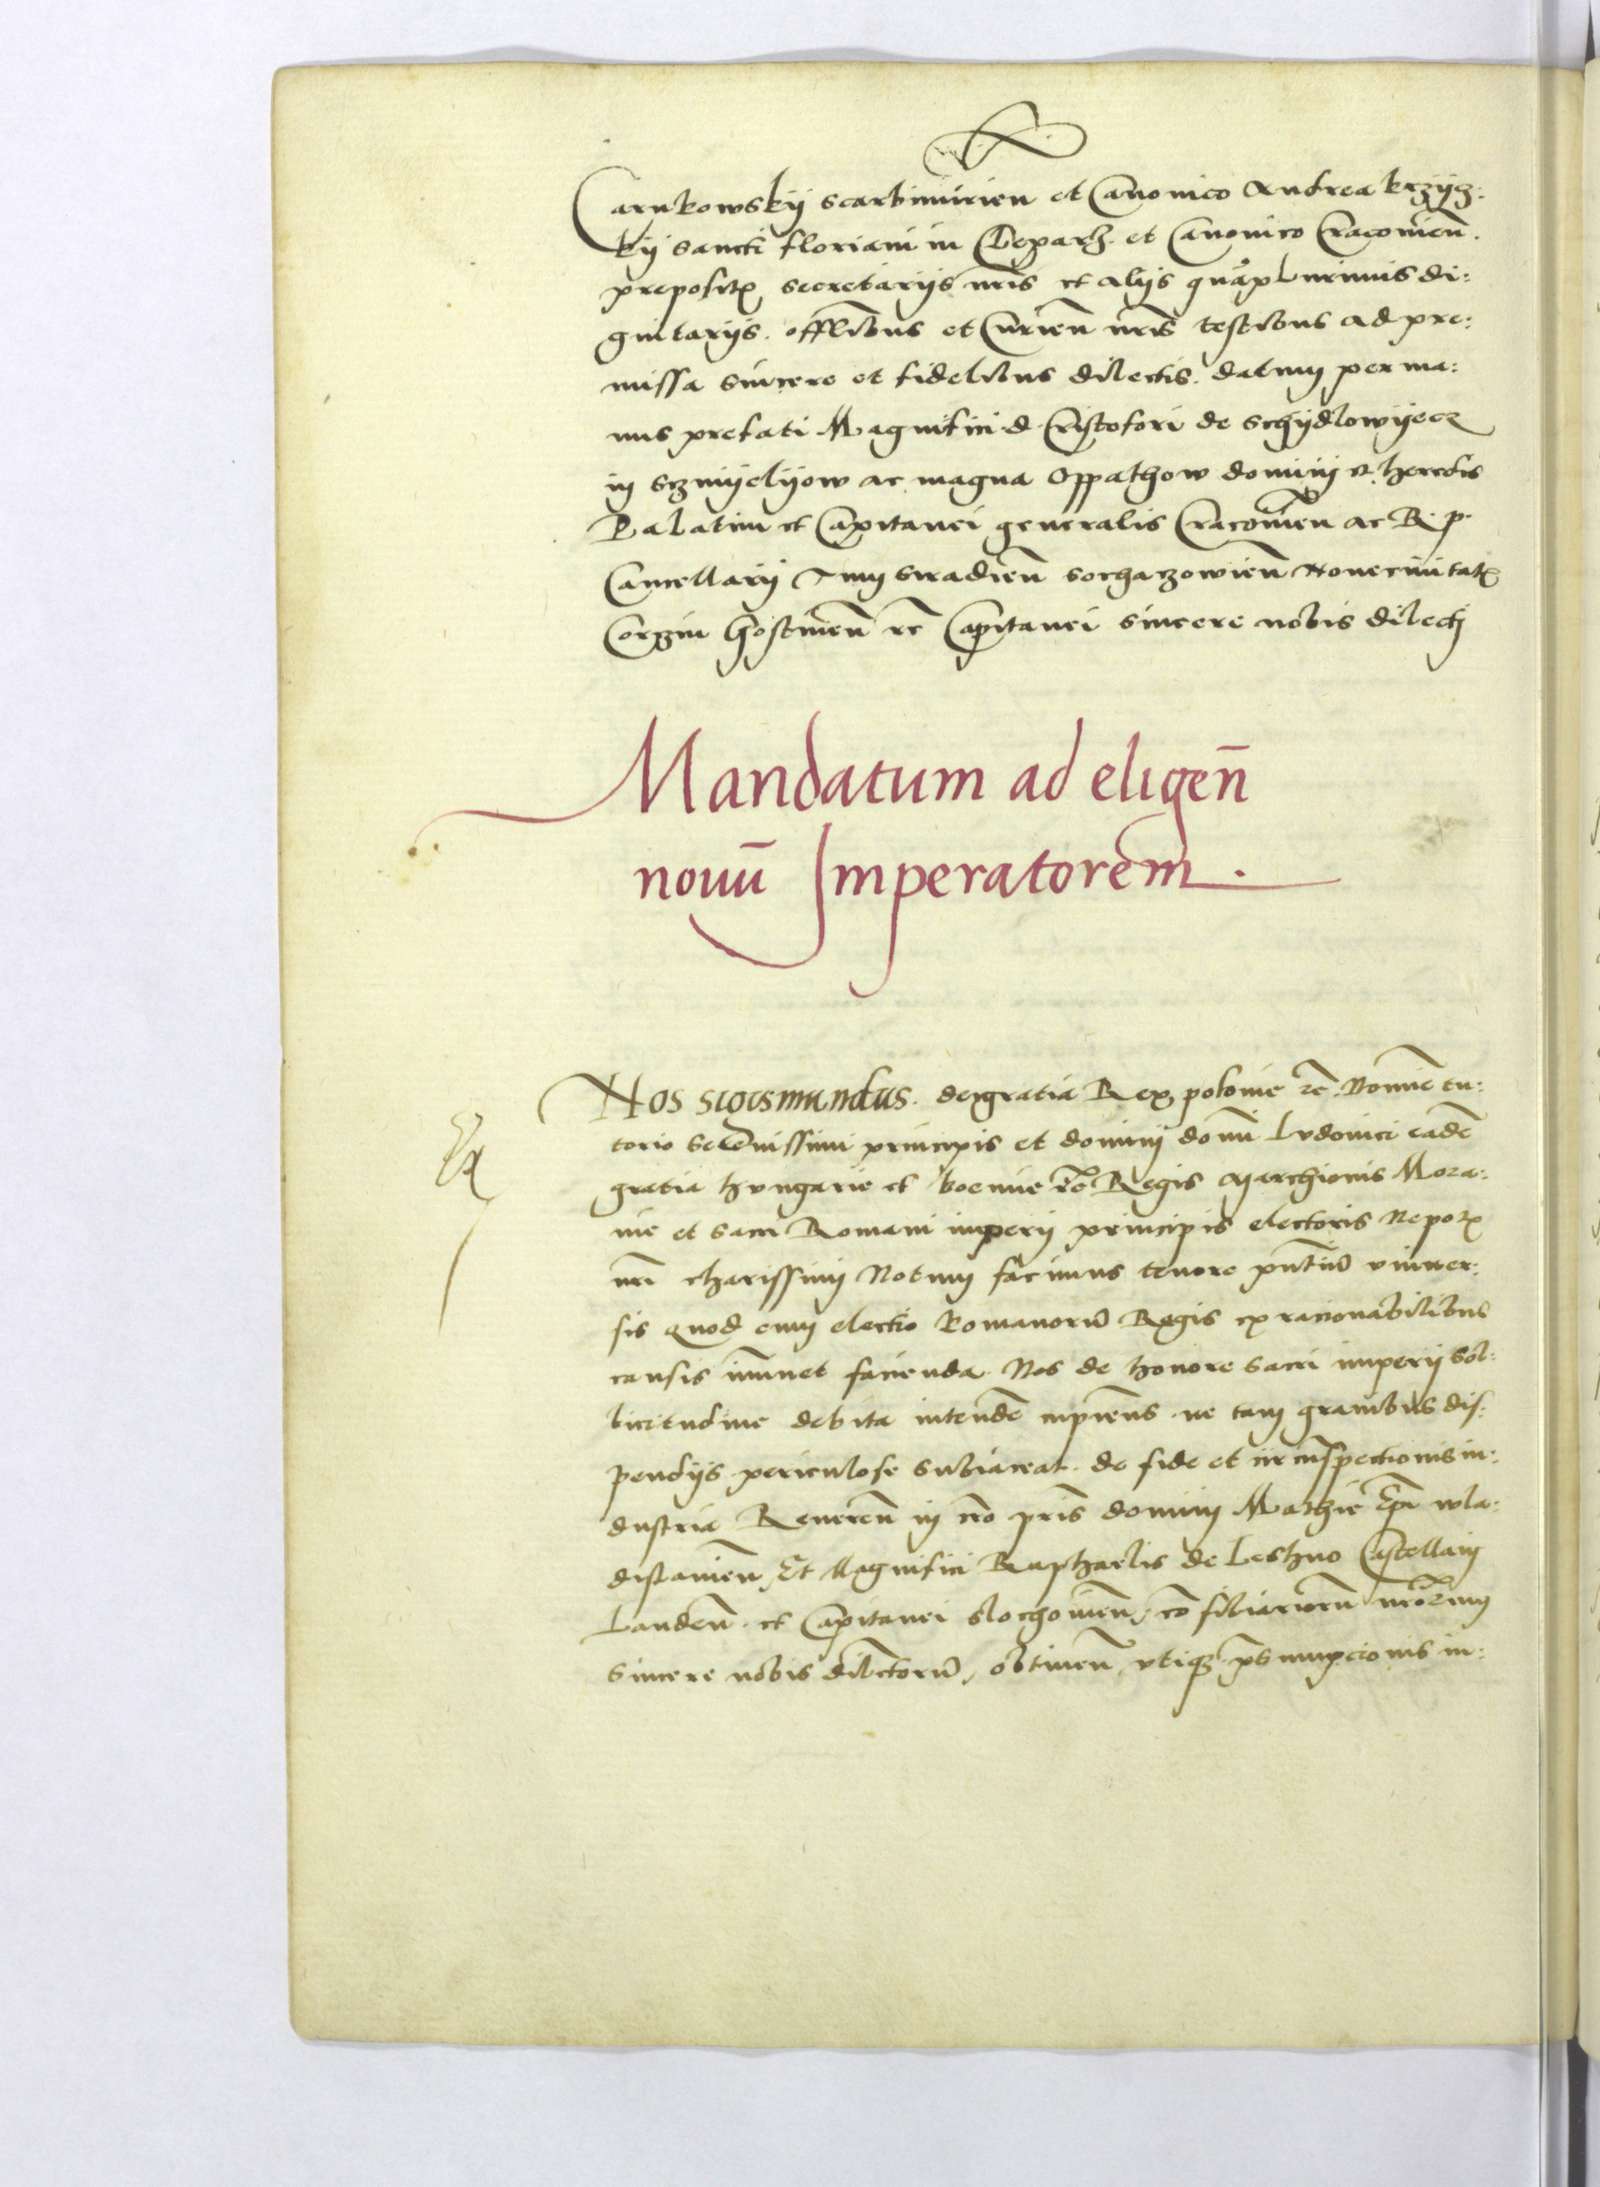 Carnkowskij scarbimirien et Canonico Andrea krzijcz:
kij sancti floriani in Cleparz. et Canonico Cracovien̄.
preposit secretariis nr̄is et aliis qua͂plurimis di:
gnitariis. offl̄ibus et Curien̄ nr̄is testibus ad pre:
missa sincere et fidelibus dilectis. datum per ma:
nus prefati Magnifici d Cristofori de Schijdlowijecz
in Czmijelijow ac magna Oppathow domini et heredis
Palatini et Capitanei generalis Cracovien̄ ac R. p.
Cancellarij siradien̄ sochaczowien̄ Novecivitat
Corzin Gostinen̄ rc̄ Capitanei sincere nobis dilecti
Mandatum ad eligen̄
novū Imperatorem.
Nos sigismundus. dei gratia Rex polonie rc̄. Nomine tu:
torio serenissimi principis et domini domi͂ Ludovici eade͂
gratia hungarie et boemie rc̄ Regis Marchionis Mora:
vie et sacri Romani imperij principis electoris Nepot
nr̄i charissimi Notum facimus tenore pn̄tiu͂ univer:
sis quod cum electio Romanoru͂ Regis ex racionabilibus
causis im̄inet facienda. Nos de honore sacri imperij sol:
licitudine debita intende͂ cupiens ne tam gravibus dis:
pendijs periculose subiaceat. de fide et circu͂spectionis in:
dustria Reveren̄ in cr̄o pr̄is domini Mathie Ep̄i wla:
dislavien̄, Et Magnifici Raphaelis de Leshno Castellani
Landen̄. et Capitanei slochovien̄, co͂siliarioru͂ nr̄orum
sincere nobis dilectoru͂, obtinen̄ utiq presumpcionis in: